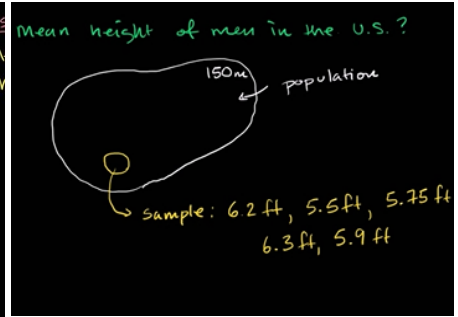 Mean height of men in the U.S.?
150m
population
sample: 6.2 ft, 5.5ft, 5.75 ft
6.3 ft, 5.9 ft